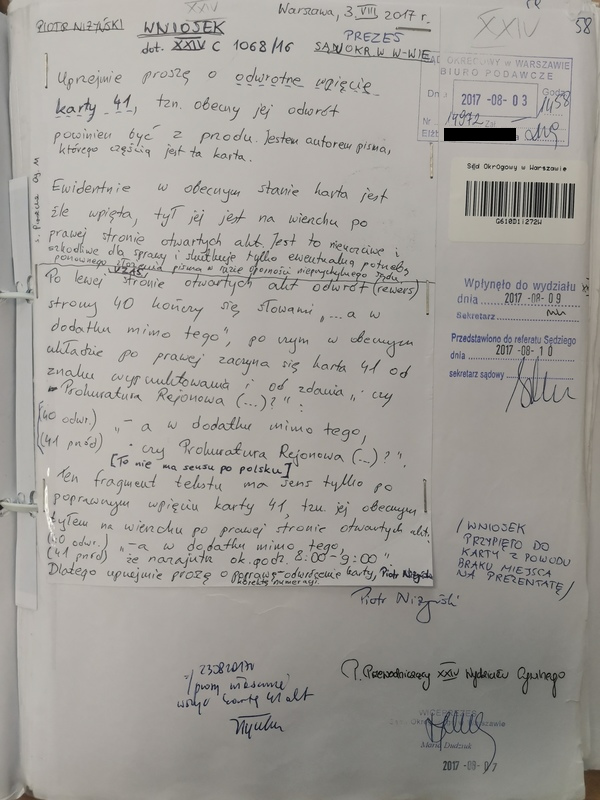 Warszawa, 3. VIII 2017 r.
XXIV
58
PIOTR NIŻYŃSKI
WNIOSEK
PREZES
dot. XXIV C 1068/16
SĄD OKR. W W-WIE
SĄD OKRĘGOWY w WARSZAWIE
BIURO PODAWCZE
2017 -08- 0 3
1458
Uprzejmie proszę o odwrotne wpięcie
karty 41, tzn. obecny jej odwrót
powinien być z przodu. Jestem autorem pisma,
którego częścią jest ta karta.
Sąd Okręgowy w Warszawie
Ewidentnie w obecnym stanie karta jest
źle wpięta, tył jej jest na wierzchu po
prawej stronie otwartych akt. Jest to nieuczciwe i
szkodliwe dla sprawy i skutkuje tylko ewentualną potrzebą
ponownego złożenia pisma w razie oporności nieprzychylnego Sądu.
Po lewej stronie otwartych akt odwrót (rewers)
strony 40 kończy się słowami „... a w
dodatku mimo tego", po czym w obecnym
układzie po prawej zaczyna się karta 41 od
znaku wypunktowania i od zdania „· czy
Prokuratura Rejonowa (...)?":
(40 odwr.) „— a w dodatku mimo tego,
(41 przód) · czy Prokuratura Rejonowa (...)?".
[To nie ma sensu po polsku]
Ten fragment tekstu ma sens tylko po
poprawnym wpięciu karty 41, tzn. jej obecnym
tyłem na wierzchu po prawej stronie otwartych akt.
(40 odwr.) „—a w dodatku mimo tego,
(41 przód) że nazajutrz ok. godz. 8:00-9:00"
Dlatego uprzejmie proszę o poprawę-odwrócenie karty, Piotr Niżyński
korektę numeracji.
Wpłynęło do wydziału
dnia 2017 -08- 0 9
Sekretarz
Przedstawiono do referatu Sędziego
dnia 2017 -08- 1 0
sekretarz sądowy
/WNIOSEK
PRZYPIĘTO DO
KARTY Z POWODU
BRAKU MIEJSCA
NA PREZENTATĘ/
Piotr Niżyński
P. Przewodniczący XXIV Wydziału Cywilnego
kartę 41 akt
WICEPREZES
Maria Dudziuk
2017 -08- 0 7